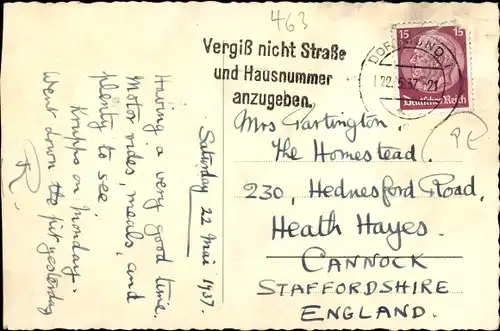 463
Vergiß nicht Straße
und Hausnummer
anzugeben.
DORTMUND
22.5.37-21
15 15
Deutsches Reich
PC
Saturday 22 Mai 1937.
Having a very good time.
Motor rides, meals, and
plenty to see.
Krupps on Monday.
Went down the pit yesterday
R.
Mrs Partington.
The Homestead.
230, Hednesford Road,
Heath Hayes.
CANNOCK
STAFFORDSHIRE
ENGLAND.